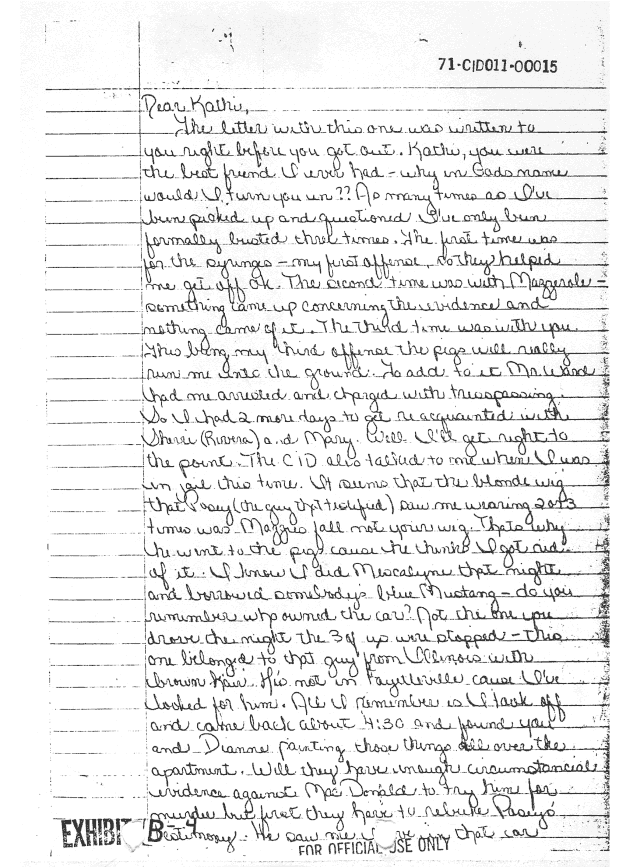 71-CID011-00015
Dear Kathi,
The letter with this one was written to
you right before you got out. Kathi, you were
the best friend I ever had - why in Gods name
would I turn you in?? As many times as I've
been picked up and questioned I've only been
formally busted three times. The first time was
for the syringes - my first offense, so they helped
me get off OK. The second time was with Mazzerole -
something came up concerning the evidence and
nothing came of it. The third time was with you.
This being my third offense the pigs will really
run me into the ground. To add to it Mr.
had me arrested and charged with trespassing.
So I had 2 more days to get reacquainted with
Sherri (Rivera) and Mary. Well I'll get right to
the point. The CID also talked to me when I was
in jail this time. It seems that the blonde wig
that Posey (the guy that testified) saw me wearing 2 or 3
times was Maggies fall not your wig. Thats why
he went to the pigs cause he thinks I got rid
of it. I know I did Mescalyne that night
and borrowed somebodys blue Mustang - do you
remember who owned the car? Not the one you
drove the night the 3 of us were stopped - this
one belonged to that guy from Illinois with
brown hair. He's not in Fayetteville cause I've
looked for him. All I remember is I took off
and came back about 4:30 and found you
and Dianne painting those things all over the
apartment. Well they have enough circumstancial
evidence against MacDonald to try him for
murder but first they have to rebuke Posey's
testimony. He saw me in that car
EXHIBIT B-4
FOR OFFICIAL USE ONLY